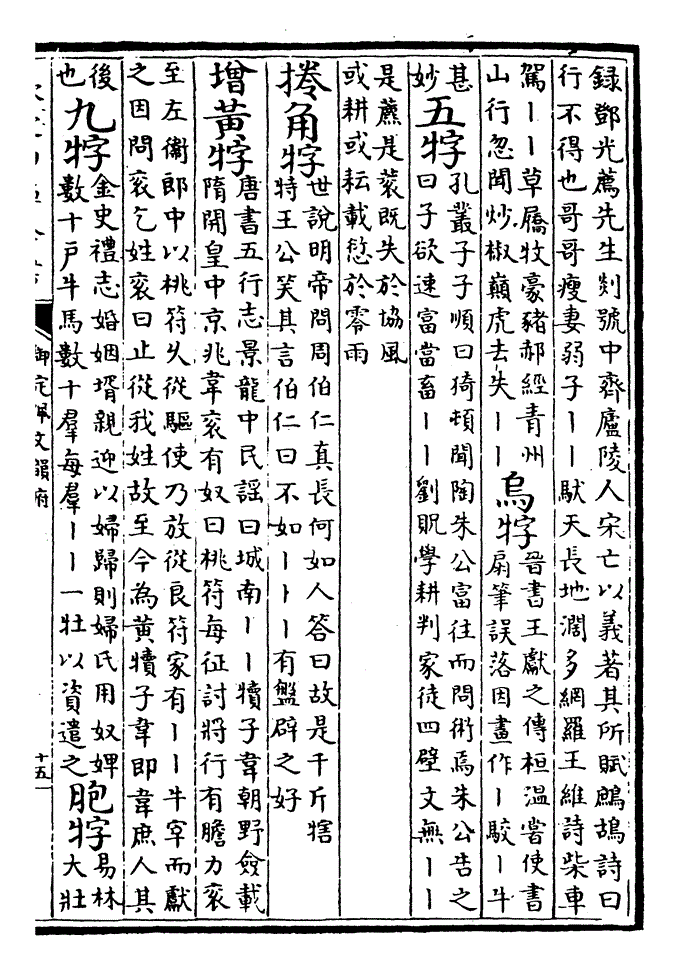 錄鄧光薦先生剡號中齊廬陵人宋亡以義著其所賦鷓鴣詩曰
行不得也哥哥瘦妻弱子丨丨馱天長地濶多網羅王維詩柴車
駕丨丨草屩牧豪豬郝經青州
山行忽聞炒椒巔虎去失丨丨
烏牸
晉書王獻之傳桓温嘗使書
扇筆誤落因畫作丨駮丨牛
甚
妙
五牸
孔叢子子順曰猗頓聞陶朱公富往而問術焉朱公告之
曰子欲速富當畜丨丨劉貺學耕判家徒四壁文無丨丨
是藨是蔉既失於協風
或耕或耘載愆於零雨
捲角牸
世說明帝問周伯仁真長何如人答曰故是千斤犗
特王公笑其言伯仁曰不如丨丨丨有盤辟之好
增黃牸
唐書五行志景龍中民謡曰城南丨丨犢子韋朝野僉載
隋開皇中京兆韋衮有奴曰桃符每征討將行有膽力衮
至左衛郎中以桃符久從驅使乃放從良符家有丨丨牛宰而獻
之因問衮乞姓衮曰止從我姓故至今為黃犢子韋即韋庶人其
後
也
九牸
金史禮志婚姻壻親迎以婦歸則婦氏用奴婢
數十戶牛馬數十羣每羣丨丨一牡以資遣之
胞牸
易林
大壯
御定佩文韻府
十五